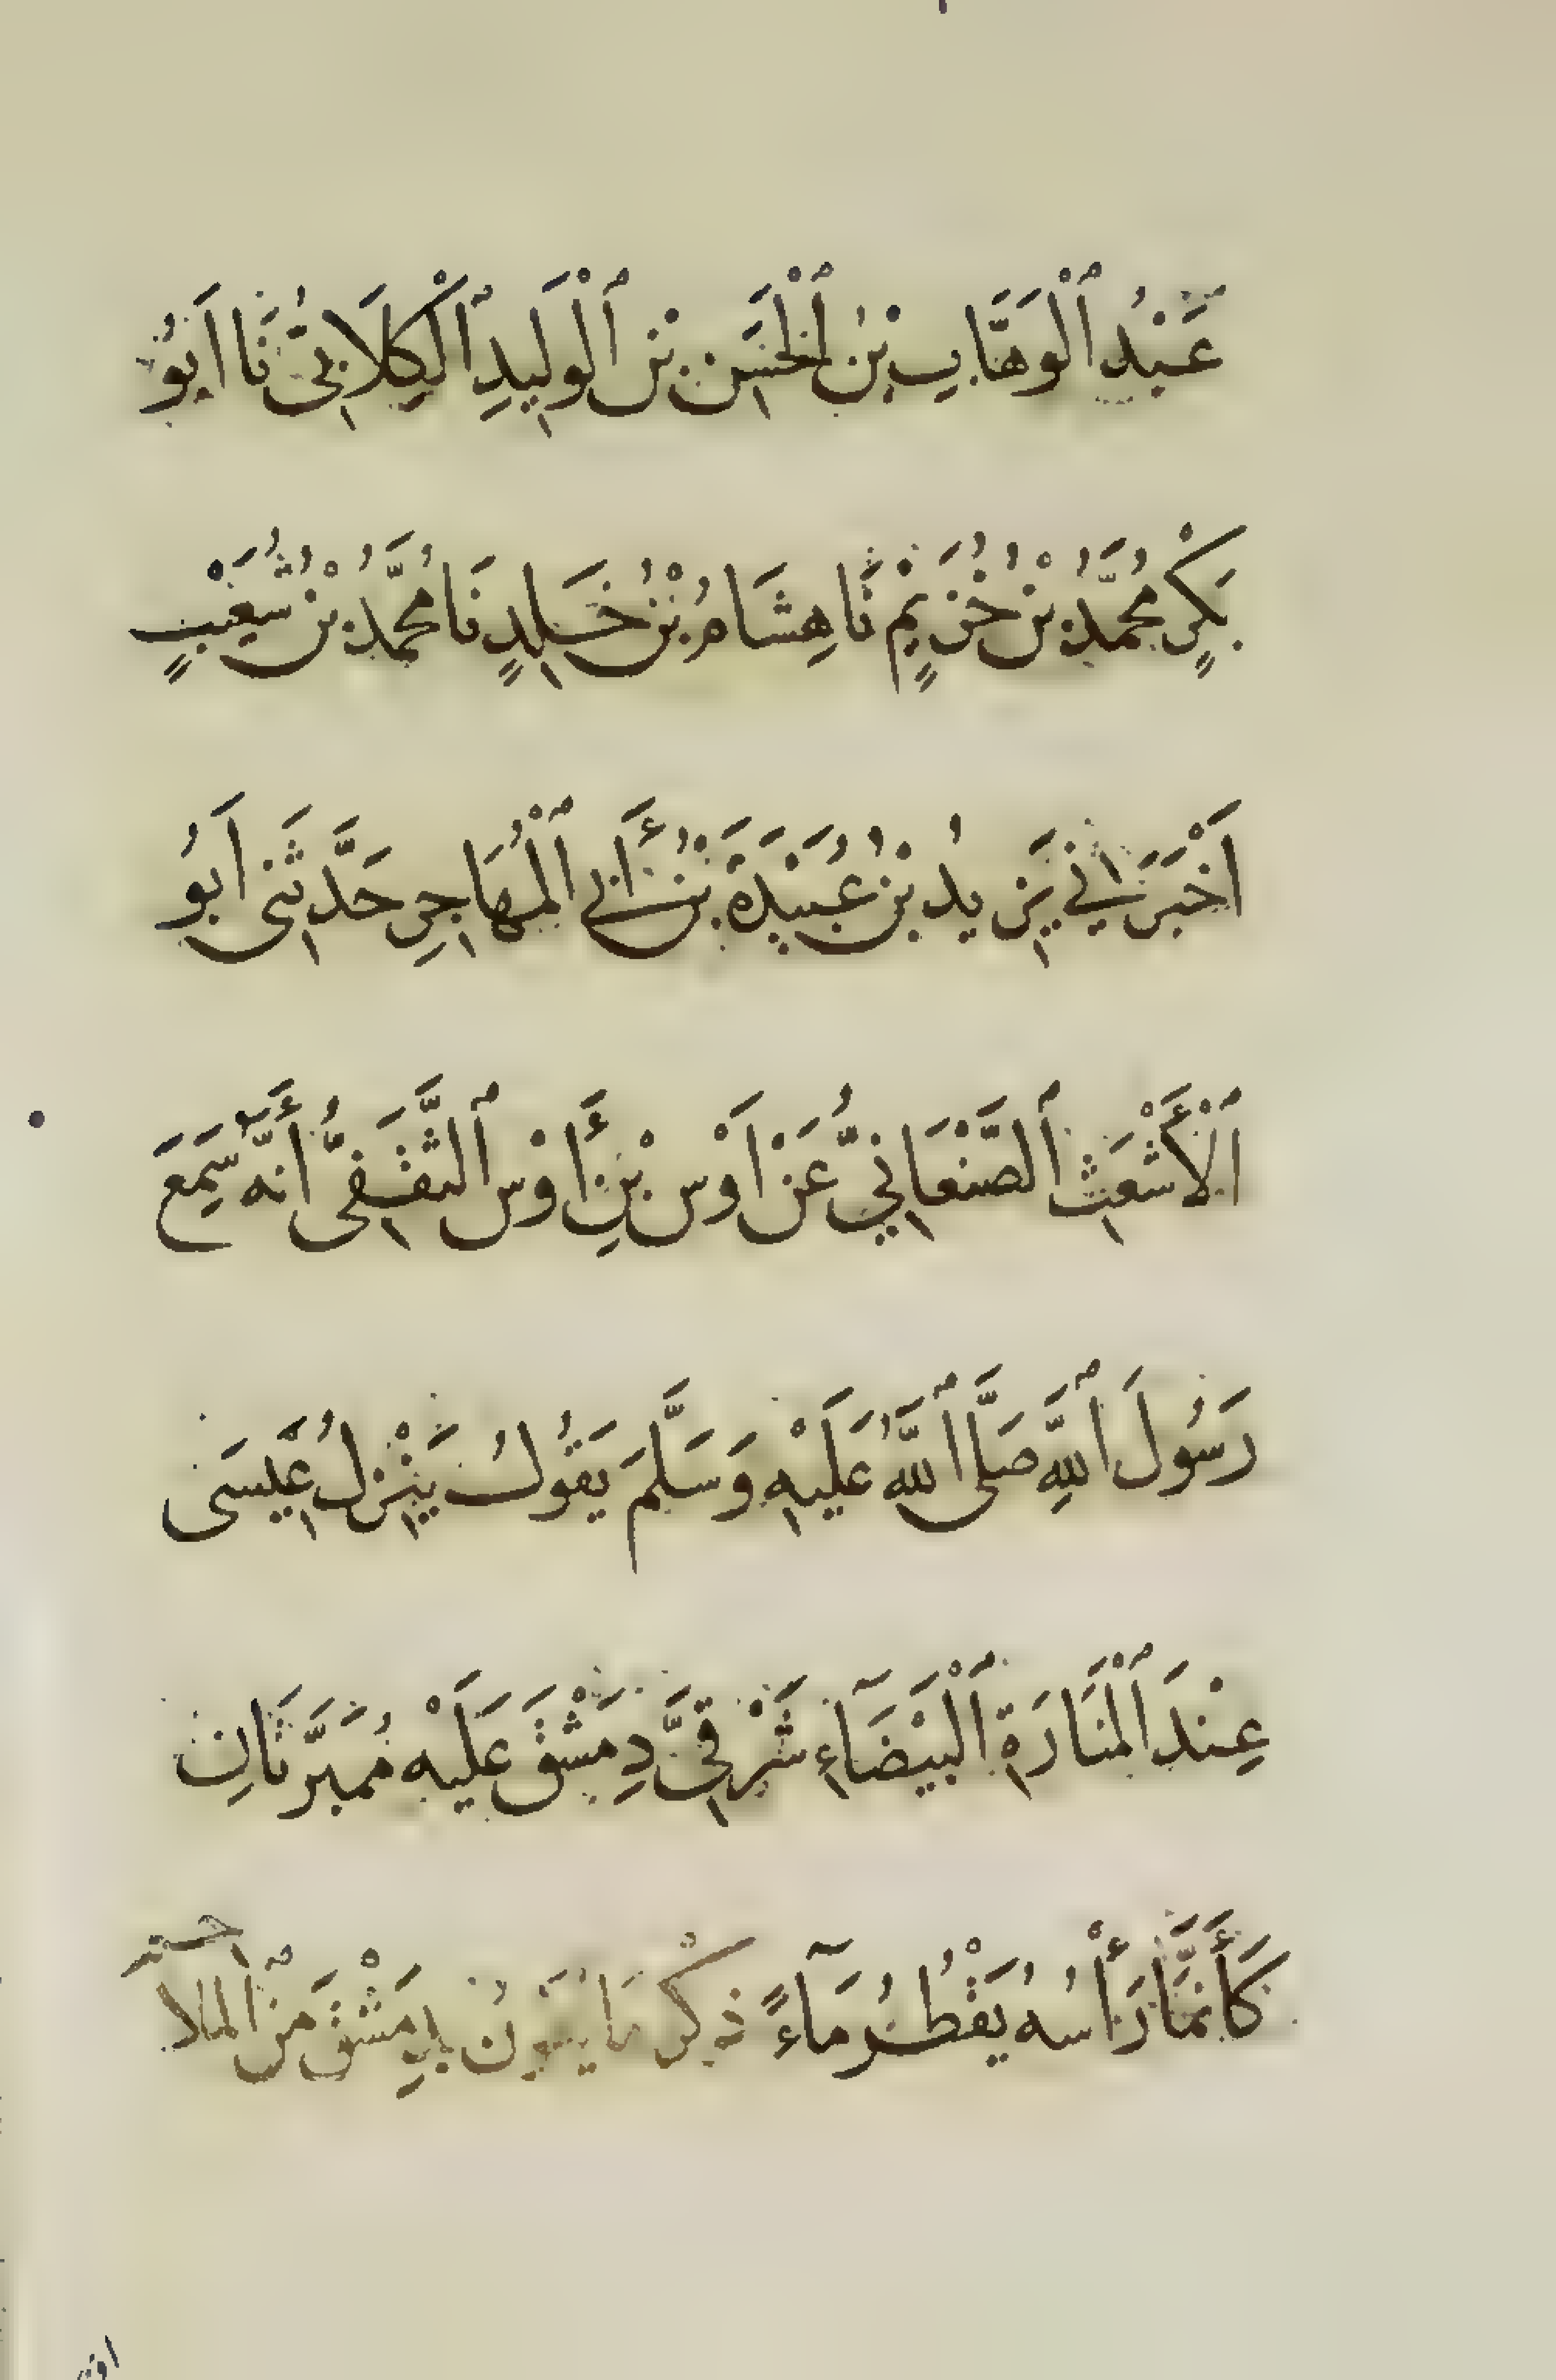 عَبْدُ ٱلْوَهَّابِ بْنُ ٱلْحَسَنِ بْنِ ٱلْوَلِيدِ ٱلْكِلَابِيُّ نَا اَبُو
بَكْرٍ مُحَمَّدُ بْنُ خُزَيْمٍ نَا هِشَامُ بْنُ خَـٰلِدٍ نَا مُحَمَّدُ بْنُ شُعَيْبٍ
اَخْبَرَنِي يَزِيدُ بْنُ عُبَيْدَةَ بْنِ أَبِي ٱلْمُهَاجِرِ حَدَّثَنِى اَبُو
ٱلْأَشْعَثِ ٱلصَّنْعَانِيُّ عَنْ اَوْسِ بْنِ أَوْسِ ٱلثَّقَفِىُّ أَنَّهُ سَمِعَ
رَسُولَ ٱللَّهِ صَلَّى ٱللَّهُ عَلَيْهِ وَسَلَّمَ يَقُولُ يَنْزِلُ عِيسَى
عِنْدَ ٱلْمَنَارَةِ ٱلْبَيْضَآءِ شَرْقِىَّ دِمَشْقَ عَلَيْهِ مُمَصَّرَتَانِ
كَأَنَّمَا رَأْسُهُ يَقْطُرُ مَآءً ذِكْرُ مَا يَكُونُ بِدِمَشْقَ مِنْ ٱلملا